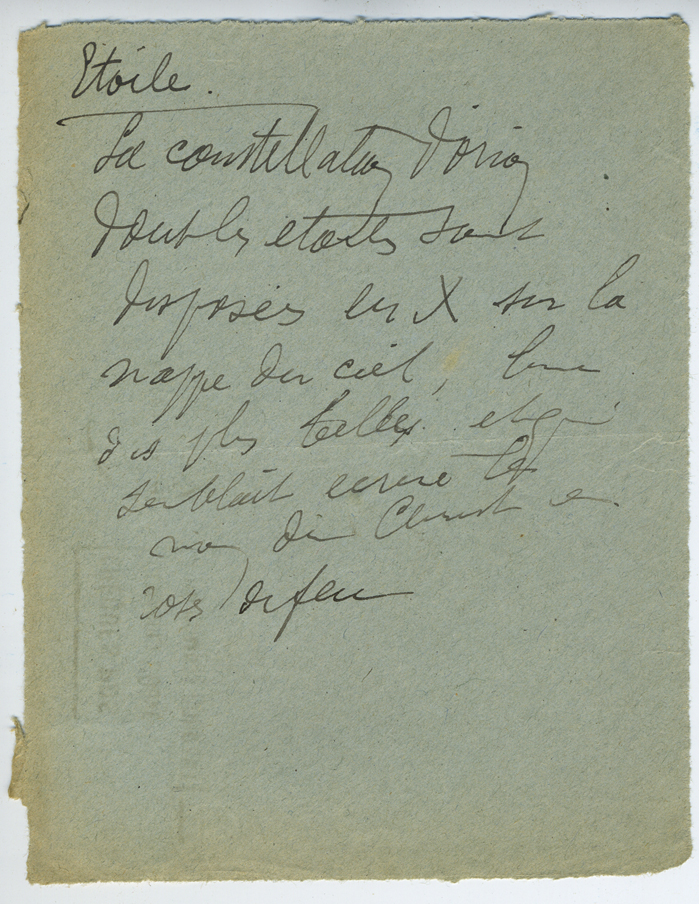 Etoile.
La constellation d'orion
dont les etoiles sont
disposées en X sur la
nappe du ciel, l'une
des plus belles et qui
semblait ecrire le
nom du Christ en
de feu